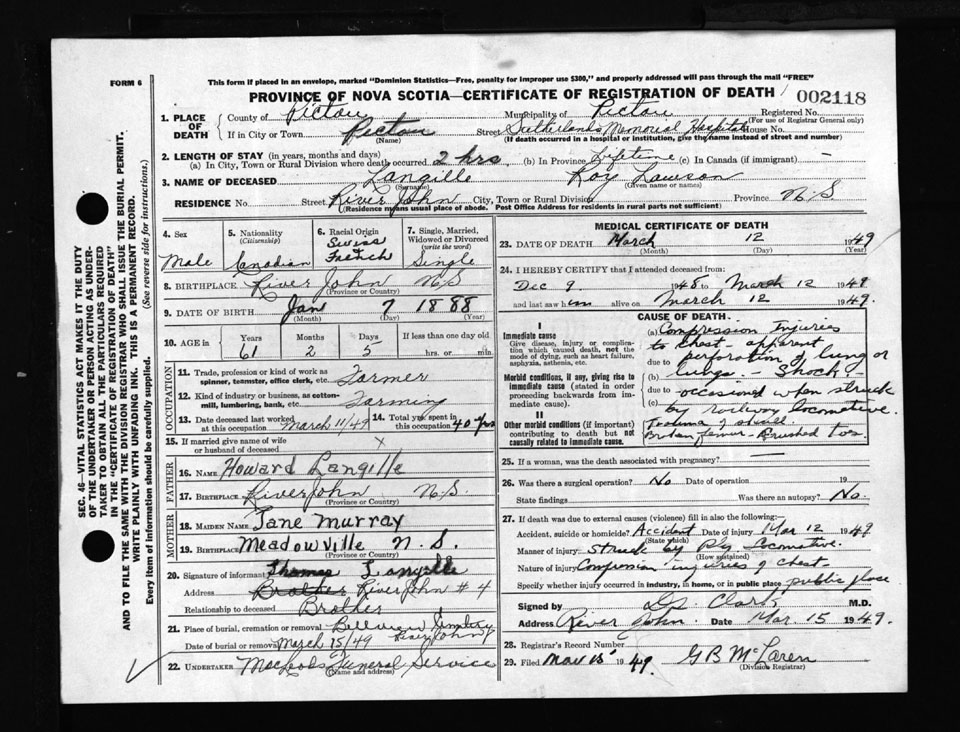 FORM 6
This form if placed in an envelope, marked "Dominion Statistics—Free, penalty for improper use $300," and properly addressed will pass through the mail "FREE"
PROVINCE OF NOVA SCOTIA—CERTIFICATE OF REGISTRATION OF DEATH
002118
1. PLACE OF DEATH
County of Pictou Municipality of Pictou Registered No.
(For use of Registrar General only)
If in City or Town Pictou Street Sutherland's Memorial Hospital House No.
(Name) (If death occurred in a hospital or institution, give the name instead of street and number)
2. LENGTH OF STAY (in years, months and days)
(a) In City, Town or Rural Division where death occurred 2 hrs (b) In Province Lifetime (c) In Canada (if immigrant) —
3. NAME OF DECEASED Langille Roy Lawson
(Surname) (Given name or names)
RESIDENCE No. Street River John City, Town or Rural Division Province N.S.
(Residence means usual place of abode. Post Office Address for residents in rural parts not sufficient)
4. Sex Male
5. Nationality (Citizenship) Canadian
6. Racial Origin Swiss & French
7. Single, Married, Widowed or Divorced (write the word) Single
8. BIRTHPLACE River John N.S.
(Province or Country)
9. DATE OF BIRTH Jan 7 1888
(Month) (Day) (Year)
10. AGE in Years Months Days If less than one day old
61 2 5 hrs. or min.
OCCUPATION
11. Trade, profession or kind of work as spinner, teamster, office clerk, etc. Farmer
12. Kind of industry or business, as cotton-mill, lumbering, bank, etc. Farming
13. Date deceased last worked at this occupation March 11/49
14. Total yrs spent in this occupation 40 yrs
15. If married give name of wife or husband of deceased x
FATHER
16. NAME Howard Langille
17. BIRTHPLACE River John N.S.
(Province or Country)
MOTHER
18. MAIDEN NAME Jane Murray
19. BIRTHPLACE Meadowville N.S.
(Province or Country)
20. Signature of informant Thomas Langille
Address Brother River John # 4
Relationship to deceased Brother
21. Place of burial, cremation or removal Bellview Cemetery River John
Date of burial or removal March 15/49
22. UNDERTAKER MacLeods Funeral Service
(Name and address)
MEDICAL CERTIFICATE OF DEATH
23. DATE OF DEATH March 12 1949
(Month) (Day) (Year)
24. I HEREBY CERTIFY that I attended deceased from:
Dec 9 1948 to March 12 1949
and last saw him alive on March 12 1949.
CAUSE OF DEATH
I
Immediate cause
Give disease, injury or complication which caused death, not the mode of dying, such as heart failure, asphyxia, asthenia, etc.
Morbid conditions, if any, giving rise to immediate cause (stated in order proceeding backwards from immediate cause).
II
Other morbid conditions (if important) contributing to death but not causally related to immediate cause.
(a) Compression Injuries
to Chest - apparent
due to perforation of lung or
(b) lungs. - Shock -
due to occasioned when struck
(c) by railway locomotive.
Broken femur - Crushed toes.
25. If a woman, was the death associated with pregnancy? —
26. Was there a surgical operation? No Date of operation 19
State findings Was there an autopsy? No.
27. If death was due to external causes (violence) fill in also the following:—
Accident, suicide or homicide? Accident Date of injury Mar 12 1949
(State which)
Manner of injury Struck by Rly Locomotive.
(How sustained)
Nature of injury Compression injuries of chest
Specify whether injury occurred in industry, in home, or in public place public place
Signed by Clark M.D.
Address River John. Date Mar. 15 1949.
28. Registrar's Record Number
29. Filed Mar 15 1949. G B McLaren
(Division Registrar)
SEC. 46— VITAL STATISTICS ACT MAKES IT THE DUTY
OF THE UNDERTAKER OR PERSON ACTING AS UNDERTAKER TO OBTAIN ALL THE PARTICULARS REQUIRED
IN THE "CERTIFICATE OF REGISTRATION OF DEATH"
AND TO FILE THE SAME WITH THE DIVISION REGISTRAR WHO SHALL ISSUE THE BURIAL PERMIT.
WRITE PLAINLY WITH UNFADING INK. THIS IS A PERMANENT RECORD.
Every item of information should be carefully supplied. (See reverse side for instructions.)